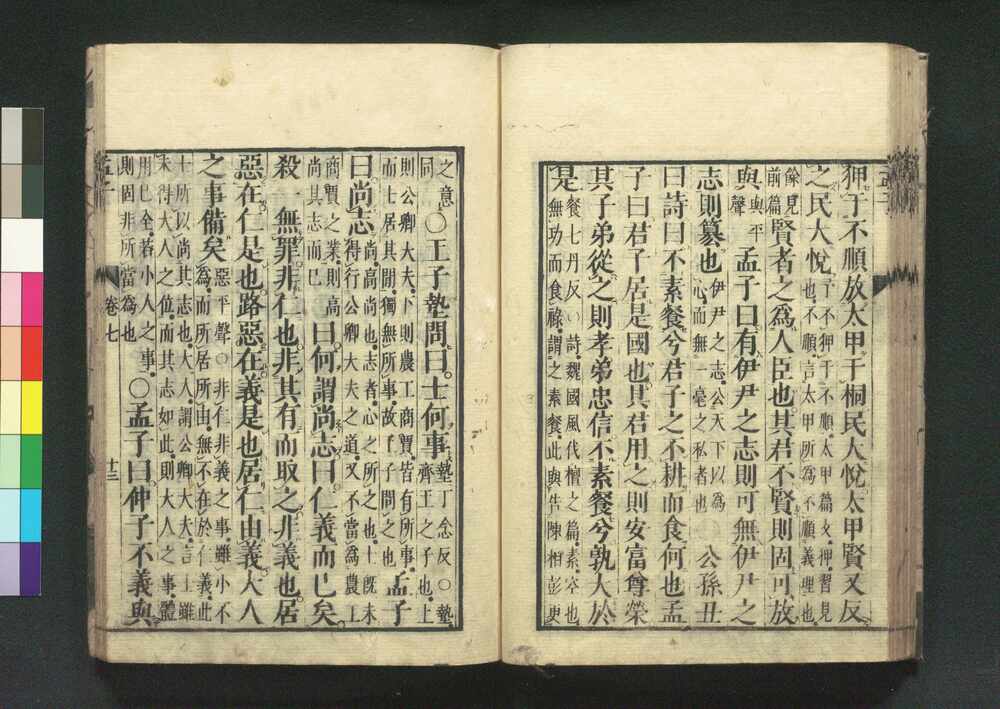 狎于不順放太甲于桐民大悅太甲賢又反
之民大悅予不狎于不順太甲篇文狎習見
也不順言太甲所為不順義理也
餘見
前篇賢者之為人臣也其君不賢則固可放
與與平
聲孟子曰有伊尹之志則可無伊尹之
志則篡也伊尹之志公天下以為
心而無一毫之私者也公孫丑
曰詩曰不素餐兮君子之不耕而食何也孟
子曰君子居是國也其君用之則安富尊榮
其子弟從之則孝弟忠信不素餐兮孰大於
是餐七丹反○詩魏國風伐檀之篇素空也
無功而食祿謂之素餐此與告陳相彭更
之意
同○王子墊問曰士何事墊丁念反○墊
齊王之子也上
則公卿大夫下則農工商賈皆有所事
而士居其間獨無所事故王子問之也孟子
曰尚志尚高尚也志者心之所之也士既未
得行公卿大夫之道又不當為農工
商賈之業則高
尚其志而已曰何謂尚志曰仁義而已矣
殺一無罪非仁也非其有而取之非義也居
惡在仁是也路惡在義是也居仁由義大人
之事備矣惡平聲○非仁非義之事雖小不
為而所居所由無不在於仁義此
士所以尚其志也大人謂公卿大夫言士雖
未得大人之位而其志如此則大人之事體
用已全若小人之事
則固非所當為也○孟子曰仲子不義與
孟子 卷七 十三